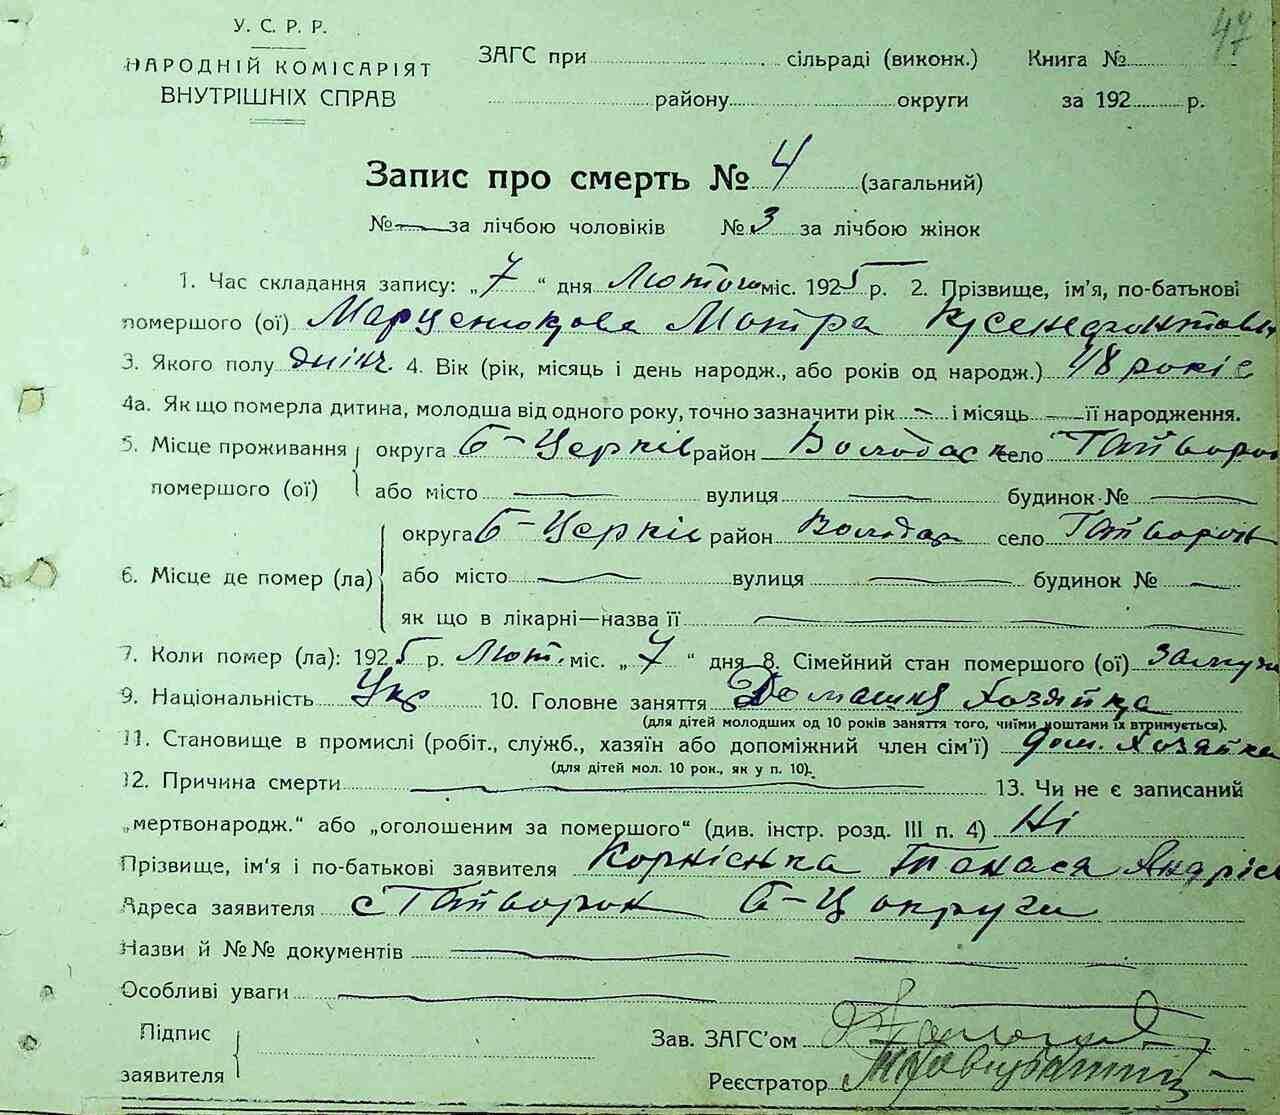 47
У. С. Р. Р.
НАРОДНІЙ КОМІСАРІЯТ
ВНУТРІШНІХ СПРАВ
ЗАГС при сільраді (виконк.) Книга №
району округи за 192 р.
Запис про смерть № 4 (загальний)
№ — за лічбою чоловіків № 3 за лічбою жінок
1. Час складання запису: „7“ дня Лютого міс. 1925 р. 2. Прізвище, ім'я, по-батькові
помершого (ої) Марценюкова Мотра
3. Якого полу жіно. 4. Вік (рік, місяць і день народж., або років од народж.) 48 років
4а. Як що померла дитина, молодша від одного року, точно зазначити рік — і місяць — її народження.
5. Місце проживання помершого (ої) округа Б-Церків район Володарск село
або місто — вулиця — будинок № —
6. Місце де помер (ла) округа Б-Церків район Володар село
або місто — вулиця — будинок № —
як що в лікарні—назва її —
7. Коли помер (ла): 1925 р. Лют. міс. „7“ дня 8. Сімейний стан помершого (ої) Замужн
9. Національність Укр 10. Головне заняття Домашня Хозяйка
(для дітей молодших од 10 років заняття того, чиїми коштами їх втримується).
11. Становище в промислі (робіт., служб., хазяїн або допоміжний член сім'ї) дом. Хозяйка
(для дітей мол. 10 рок., як у п. 10).
12. Причина смерти — 13. Чи не є записаний
„мертвонародж.“ або „оголошеним за помершого“ (див. інстр. розд. III п. 4) Ні
Прізвище, ім'я і по-батькові заявителя Корнієнка Танася Андрієв
Адреса заявителя с Б-Ц округи
Назви й №№ документів —
Особливі уваги —
Підпис заявителя
Зав. ЗАГС'ом
Реєстратор